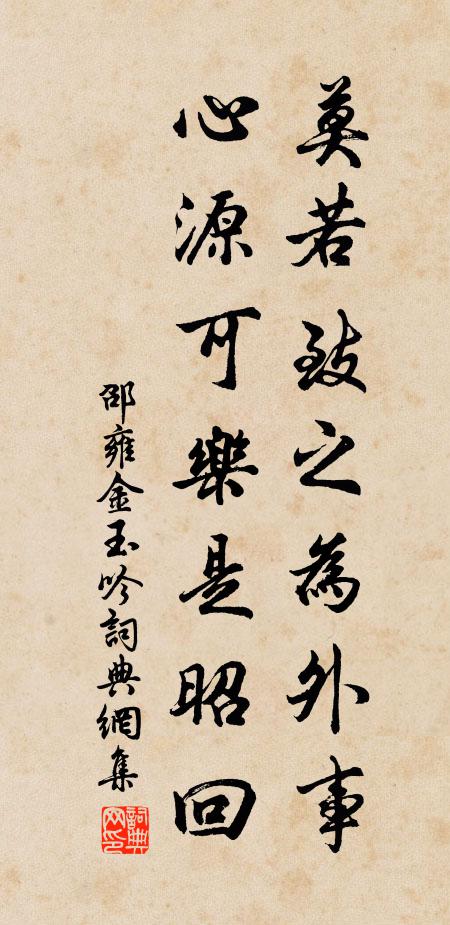 莫若致之為外事
心源可樂是昭回
邵雍金玉吟詞典網集
詞典网印